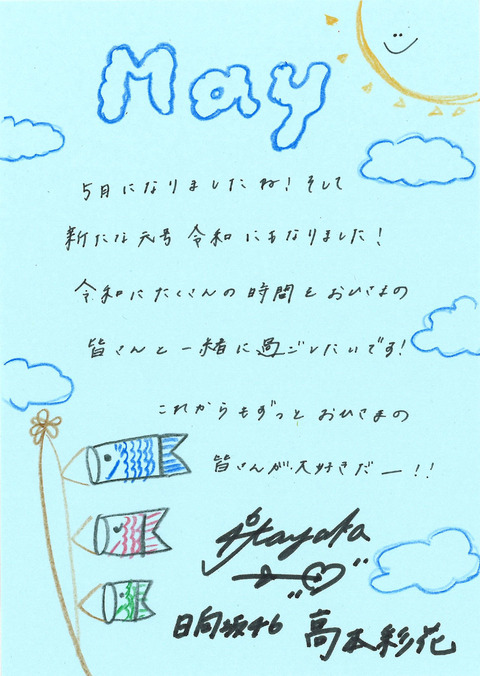 May
5月になりましたね!そして
新たな元号 令和にもなりました!
令和にたくさんの時間をおひさまの
皆さんと一緒に過ごしたいです!
これからもずっと おひさまの
皆さんが大好きだー!!
日向坂46 高本彩花